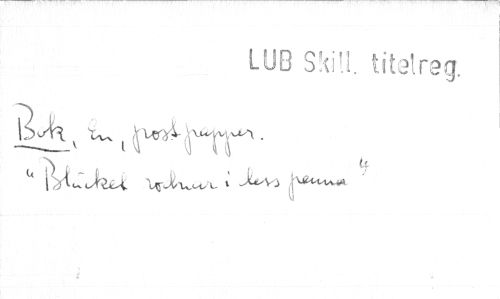 LUB Skill. titelreg.
Bok, En, postpapper.
"Bläcket torkar i less penna"